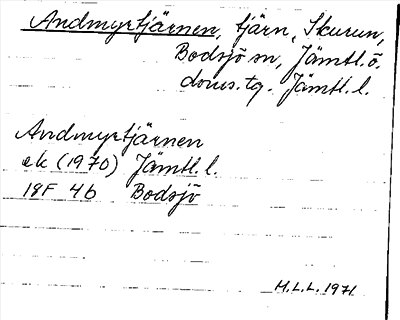 Andmyrtjärnen, tjärn, Skurun,
Bodsjö sn, Jämtl. ö.
doms.tg. Jämtl. l.
Andmyrtjärnen
ek (1970) Jämtl. l.
18F 4b Bodsjö
H.L.L. 1971